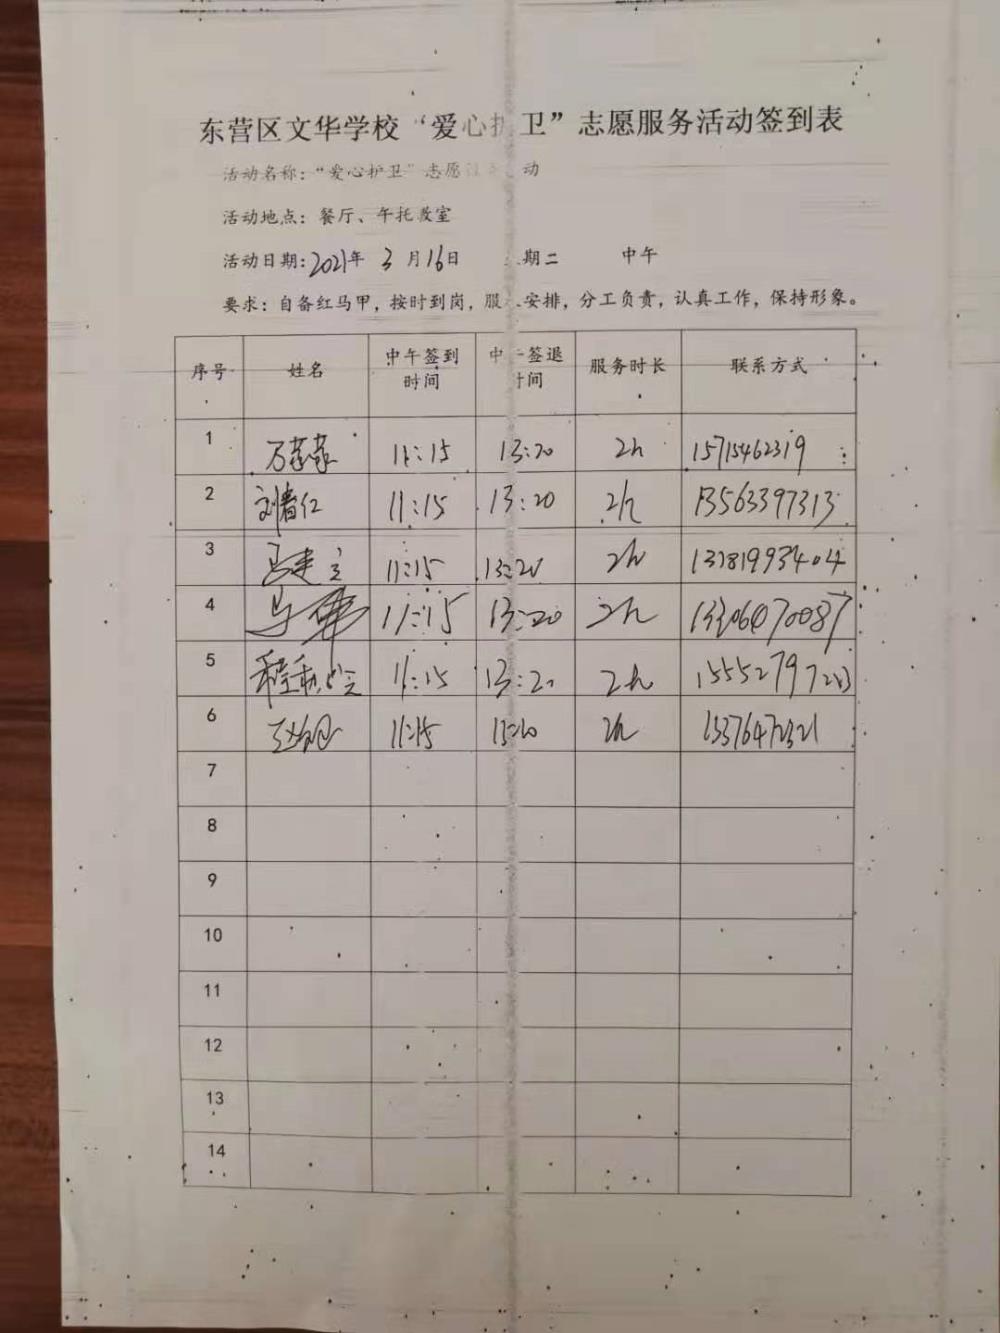 东营区文华学校“爱心护卫”志愿服务活动签到表
活动名称：“爱心护卫”志愿 动
活动地点：餐厅、午托教室
活动日期：2021年 3月16日 期二 中午
要求：自备红马甲，按时到岗，服 安排，分工负责，认真工作，保持形象。
序号 姓名 中午签到时间 中午签退时间 服务时长 联系方式
1 11:15 13:20 2h 15715462319
2 刘春仁 11:15 13:20 2h 13563397313
3 马建立 11:15 13:20 2h
4 马军 11:15 13:20 2h 13306470087
5 11:15 13:20 2h
6 11:15 2h
7
8
9
10
11
12
13
14